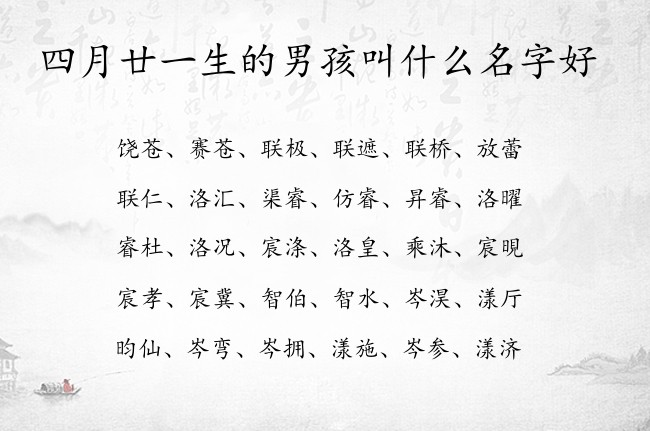 四月廿一生的男孩叫什么名字好
饶苍、赛苍、联极、联遮、联桥、放蕾
联仁、洛汇、渠睿、仿睿、昇睿、洛曜
睿杜、洛况、宸涤、洛皇、乘沐、宸晛
宸孝、宸冀、智伯、智水、岑淏、漾厅
昀仙、岑弯、岑拥、漾施、岑参、漾济